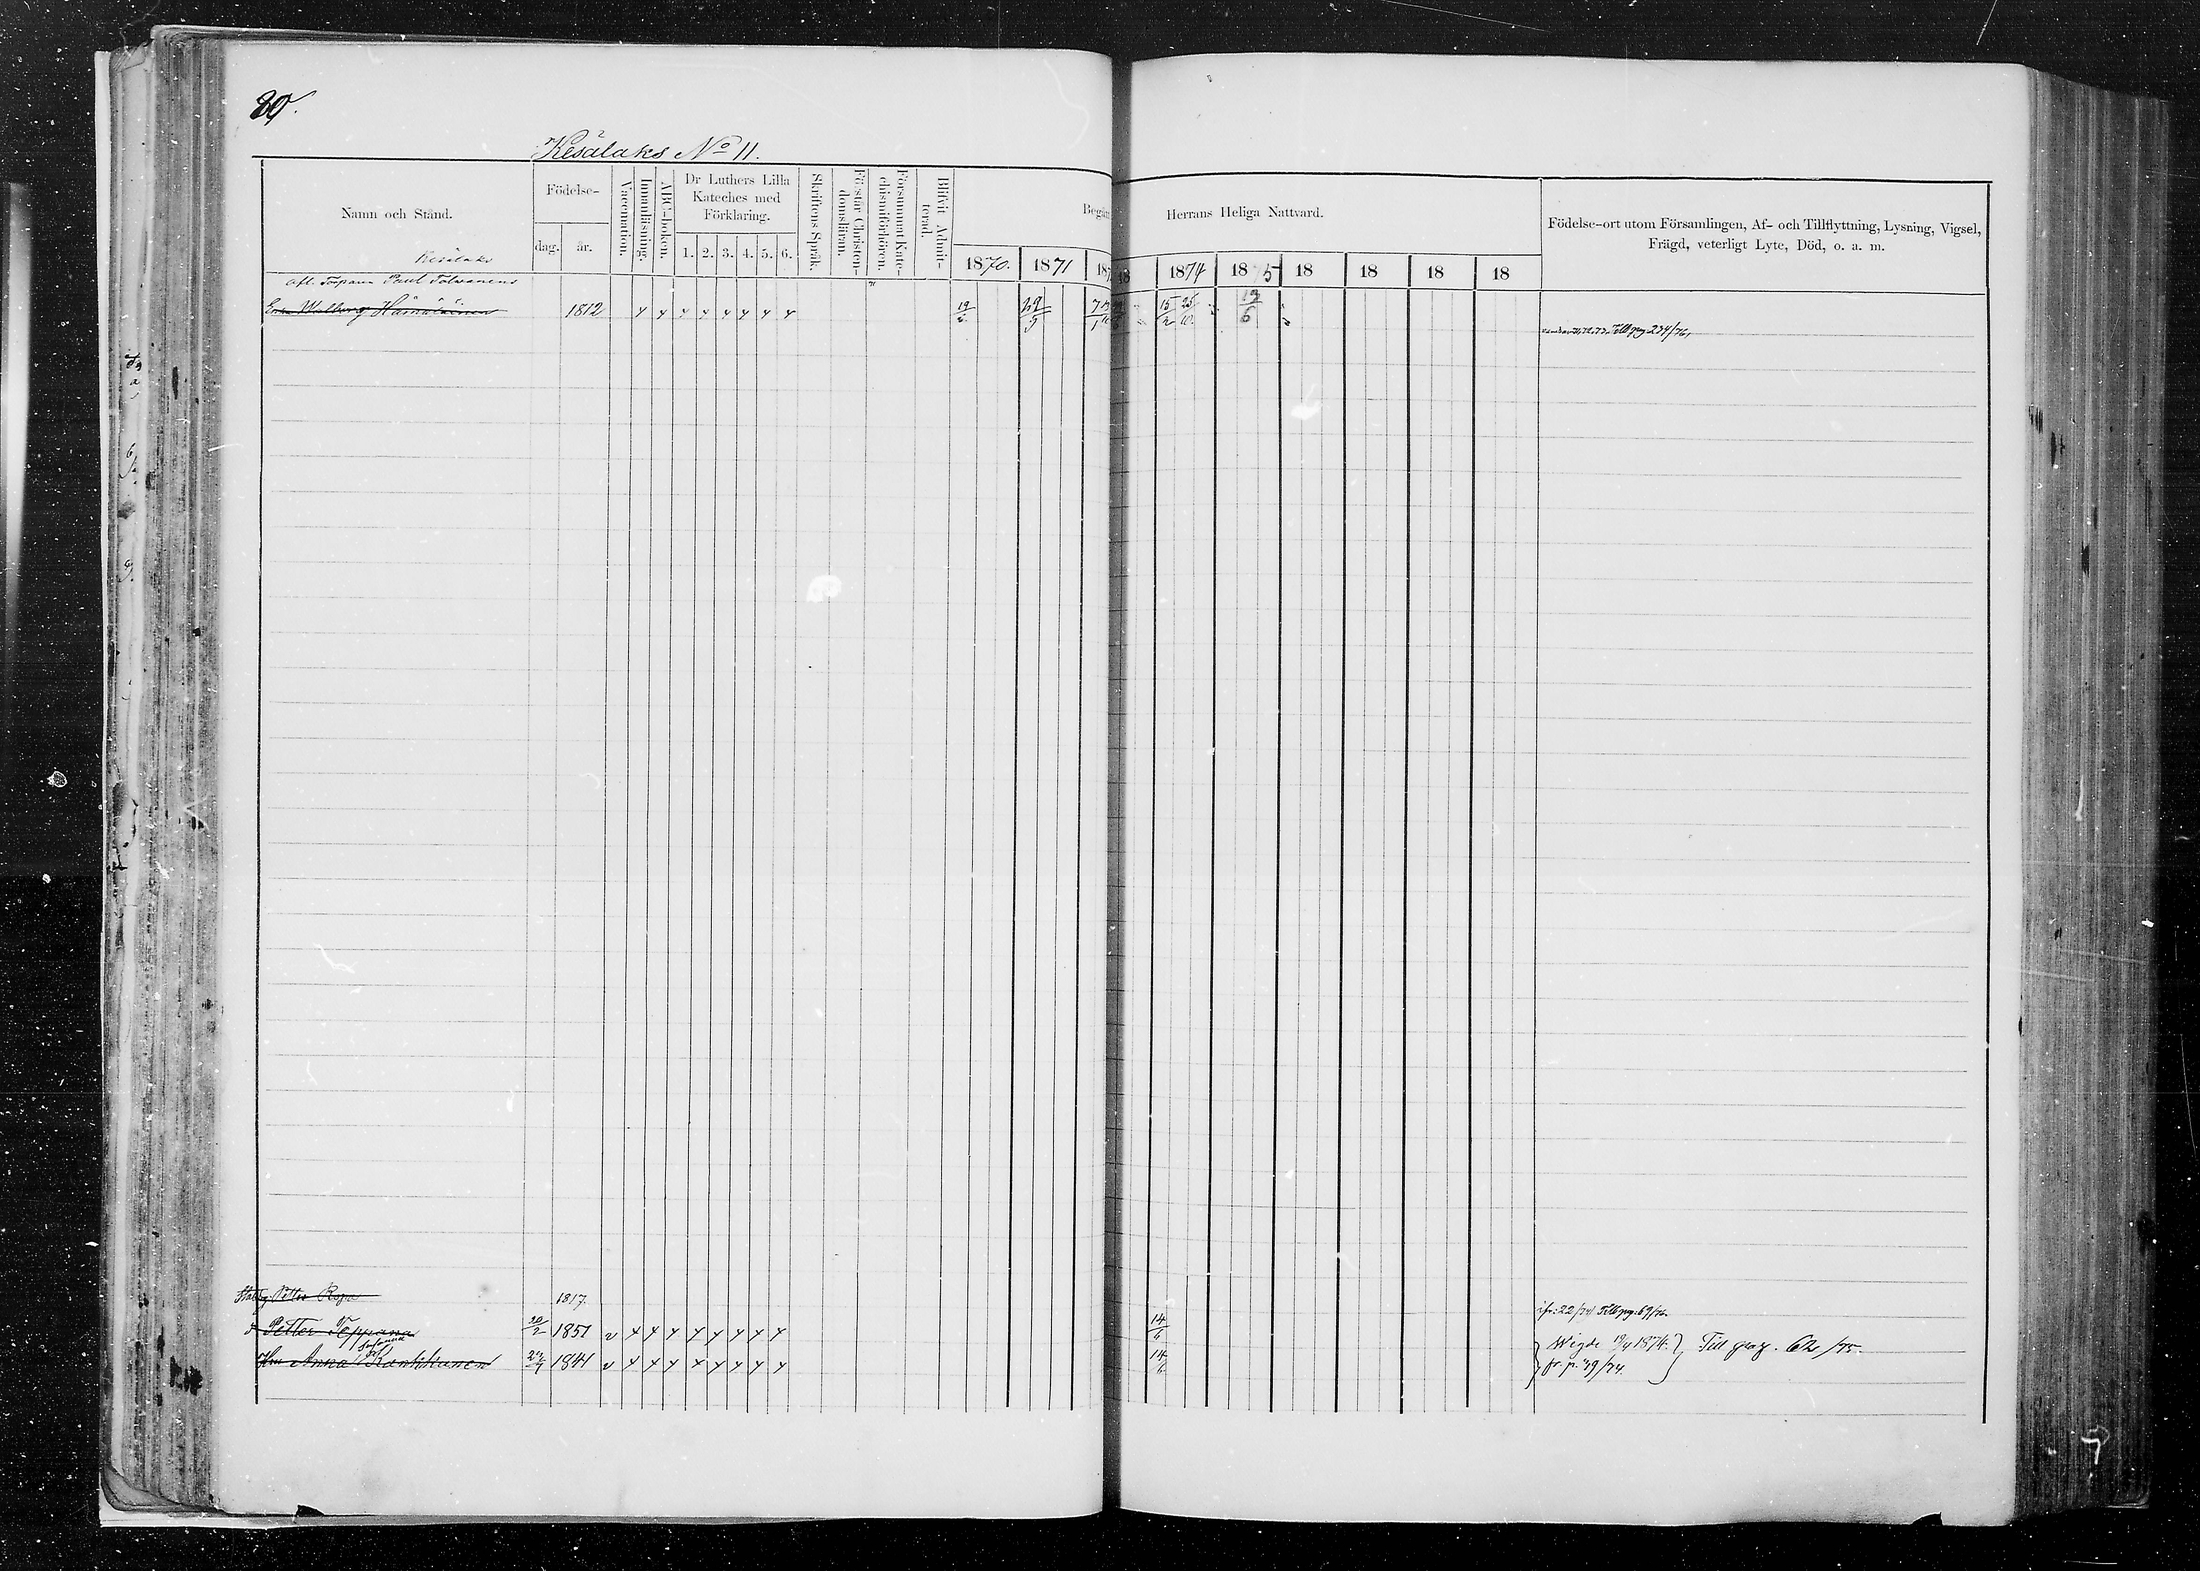 80.
Kesälaks No 11.
Namn och Stånd.
Födelse-
dag.
år.
Vaccination.
Innanläsning.
ABC-boken.
Dr Luthers Lilla
Kateches med
Förklaring.
1. 2. 3. 4. 5. 6.
Skriftens Språk.
Förstår Christen-
domsläran.
Försummat Kate-
chismiförhören.
Blifvit Admit-
terad.
Begått
Herrans Heliga Nattvard.
1870. 1871 187 18 1874 1875 18 18 18 18
Födelse-ort utom Församlingen, Af- och Tillflyttning, Lysning, Vigsel,
Frägd, veterligt Lyte, Död, o. a. m.
Kesälaks
afl. Torparen Paul Tolvanens
Enka Walborg Hämäläinen 1812 19/6 29/5 15/2 25/10 13/6
Till pag 234/76,
Petter Ropo 1817. 22/74 Till pag: 69/76.
Petter Teppana 20/2 1851 v 14/6 Wigde 19/4 1874. Till pag. 62 /75.
Hu Anna Kontkanen 1841 v 14/6 fr. p. 49/74.